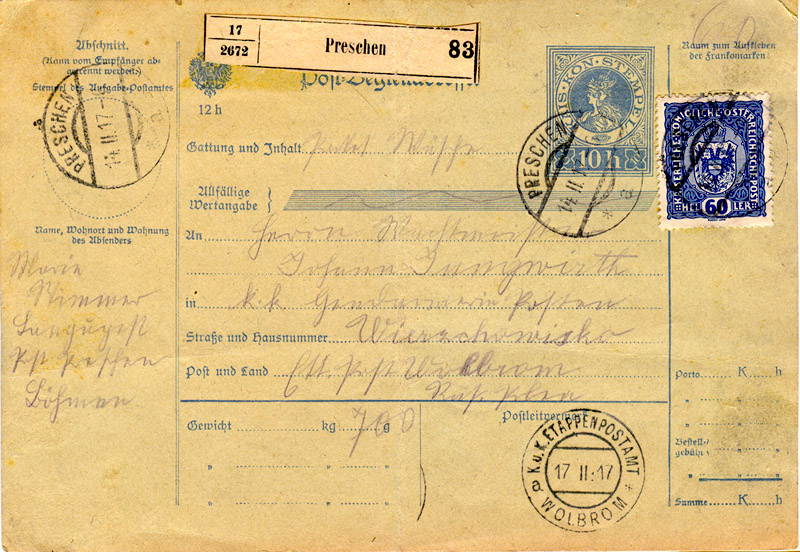 Abschnitt.
(Kann vom Empfänger ab-
getrennt werden.)
Stempel des Aufgabe-Postamtes
PRESCHEN
14 II 17
a
Name, Wohnort und Wohnung
des Absenders
Marie
Langugest
Pst Preschen
Böhmen
17
2672
Preschen
83
Post-Begleitadresse
12 h
KAIS. KÖN. STEMPEL
10 h
Raum zum Aufkleben
der Frankomarken
KAISERLICHE KÖNIGLICHE ÖSTERREICHISCHE POST
HELLER
60
PRESCHEN
14 II 17
a
Gattung und Inhalt Paket Wäsche
Allfällige
Wertangabe
An Herrn Wachtmeister
Johann Jungwirth
in k.k. Gendarmerie Posten
Straße und Hausnummer Wierzchowisko
Post und Land Ett. Post Wolbrom
Russ. Polen
Gewicht kg 700 g
" " "
" " "
Postleitvermerk
K.u.K. ETAPPENPOSTAMT
17 II 17
a WOLBROM
Porto K h
" " "
" " "
Bestell-
gebühr " "
Summe K h